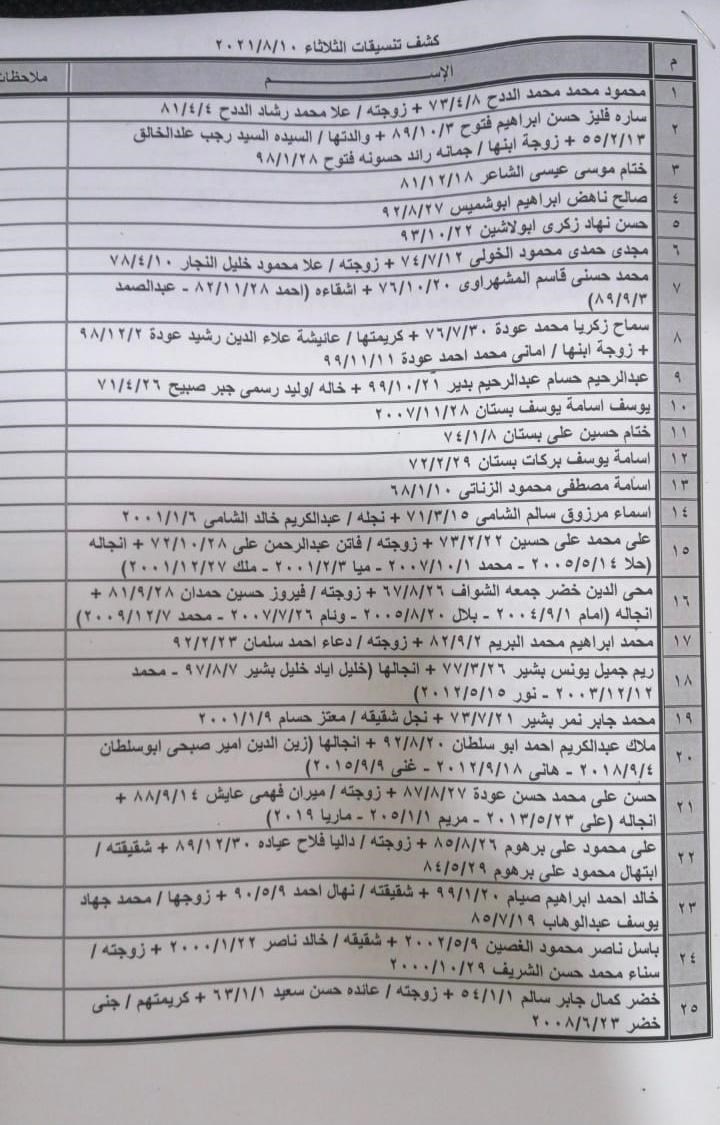 كشف تنسيقات الثلاثاء ٢٠٢١/٨/١٠
م الإســـــم ملاحظات
١ محمود محمد محمد الددح ٧٣/٤/٨ + زوجته / علا محمد رشاد الددح ٨١/٤/٤
٢ ساره فليز حسن ابراهيم فتوح ٨٩/١٠/٣ + والدتها / السيده السيد رجب علدالخالق
٥٥/٢/١٣ + زوجة ابنها / جمانه رائد حسونه فتوح ٩٨/١/٢٨
٣ ختام موسى عيسى الشاعر ٨١/١٢/١٨
٤ صالح ناهض ابراهيم ابوشميس ٩٢/٨/٢٧
٥ حسن نهاد زكرى ابولاشين ٩٣/١٠/٢٢
٦ مجدى حمدى محمود الخولى ٧٤/٧/١٢ + زوجته / علا محمود خليل النجار ٧٨/٤/١٠
٧ محمد حسنى قاسم المشهراوى ٧٦/١٠/٢٠ + اشقاءه (احمد ٨٢/١١/٢٨ - عبدالصمد
٨٩/٩/٣)
٨ سماح زكريا محمد عودة ٧٦/٧/٣٠ + كريمتها / عانيشة علاء الدين رشيد عودة ٩٨/١٢/٢
+ زوجة ابنها / امانى محمد احمد عودة ٩٩/١١/١١
٩ عبدالرحيم حسام عبدالرحيم بدير ٩٩/١٠/٢١ + خاله /وليد رسمى جبر صبيح ٧١/٤/٢٦
١٠ يوسف اسامة يوسف بستان ٢٠٠٧/١١/٢٨
١١ ختام حسين على بستان ٧٤/١/٨
١٢ اسامة يوسف بركات بستان ٧٢/٢/٢٩
١٣ اسامة مصطفى محمود الزناتى ٦٨/١/١٠
١٤ اسماء مرزوق سالم الشامى ٧١/٣/١٥ + نجله / عبدالكريم خالد الشامى ٢٠٠١/١/٦
١٥ على محمد على حسين ٧٣/٢/٢٢ + زوجته / فاتن عبدالرحمن على ٧٢/١٠/٢٨ + انجاله
(حلا ٢٠٠٥/٥/١٤ - محمد ٢٠٠٧/١٠/١ - ميا ٢٠٠١/٢/٣ - ملك ٢٠٠١/١٢/٢٧)
١٦ محى الدين خضر جمعه الشواف ٦٧/٨/٢٦ + زوجته / فيروز حسين حمدان ٨١/٩/٢٨ +
انجاله (امام ٢٠٠٤/٩/١ - بلال ٢٠٠٥/٨/٢٠ - ونام ٢٠٠٧/٧/٢٦ - محمد ٢٠٠٩/١٢/٧)
١٧ محمد ابراهيم محمد البريم ٨٢/٩/٢ + زوجته / دعاء احمد سلمان ٩٢/٢/٢٣
١٨ ريم جميل يونس بشير ٧٧/٣/٢٦ + انجالها (خليل اياد خليل بشير ٩٧/٨/٧ - محمد
٢٠٠٣/١٢/١٢ - نور ٢٠١٢/٥/١٥)
١٩ محمد جابر نمر بشير ٧٣/٧/٢١ + نجل شقيقه / معتز حسام ٢٠٠١/١/٩
٢٠ ملاك عبدالكريم احمد ابو سلطان ٩٢/٨/٢٠ + انجالها (زين الدين امير صبحى ابوسلطان
٢٠١٨/٩/٤ - هانى ٢٠١٢/٩/١٨ - غنى ٢٠١٥/٩/٩)
٢١ حسن على محمد حسن عودة ٨٧/٨/٢٧ + زوجته / ميران فهمى عايش ٨٨/٩/١٤ +
انجاله (على ٢٠١٣/٥/٢٣ - مريم ٢٠٥/١/١ - ماريا ٢٠١٩)
٢٢ على محمود على برهوم ٨٥/٨/٢٦ + زوجته / داليا فلاح عياده ٨٩/١٢/٣٠ + شقيقته /
ابتهال محمود على برهوم ٨٤/٥/٢٩
٢٣ خالد احمد ابراهيم صيام ٩٩/١/٢٠ + شقيقته / نهال احمد ٩٠/٥/٩ + زوجها / محمد جهاد
يوسف عبدالوهاب ٨٥/٧/١٩
٢٤ باسل ناصر محمود الغصين ٢٠٠٢/٥/٩ + شقيقه / خالد ناصر ٢٠٠٠/١/٢٢ + زوجته /
سناء محمد حسن الشريف ٢٠٠٠/١٠/٢٩
٢٥ خضر كمال جابر سالم ٥٤/١/١ + زوجته / عائده حسن سعيد ٦٣/١/١ + كريمتهم / جنى
خضر ٢٠٠٨/٦/٢٣